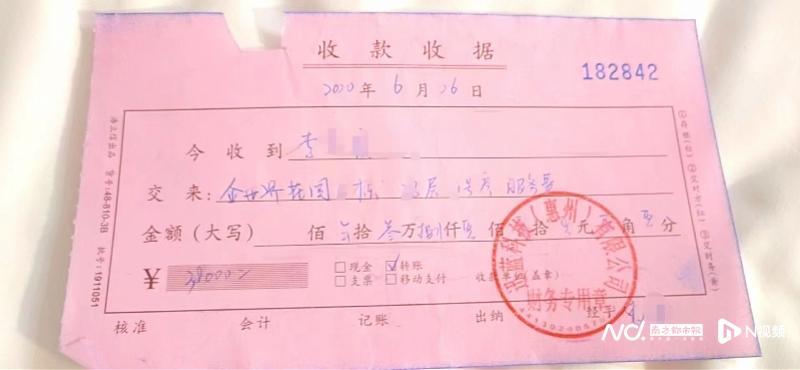 收款收据
182842
2020年6月26日
今收到 李
交来: 金世界花园 栋 层 服务费
金额(大写) 佰 拾叁万捌仟零佰 拾 元 角零分
¥ 38000
□现金 ☑转账
□支票 □移动支付 收款单位(盖章)
核准 会计 记账 出纳 经手人
①存根(白) ②交对方(红) ③交财务(黄)
货号:48-810-3B 批号:1911051
(惠州)有限公司
财务专用章
南方都市报
N视频